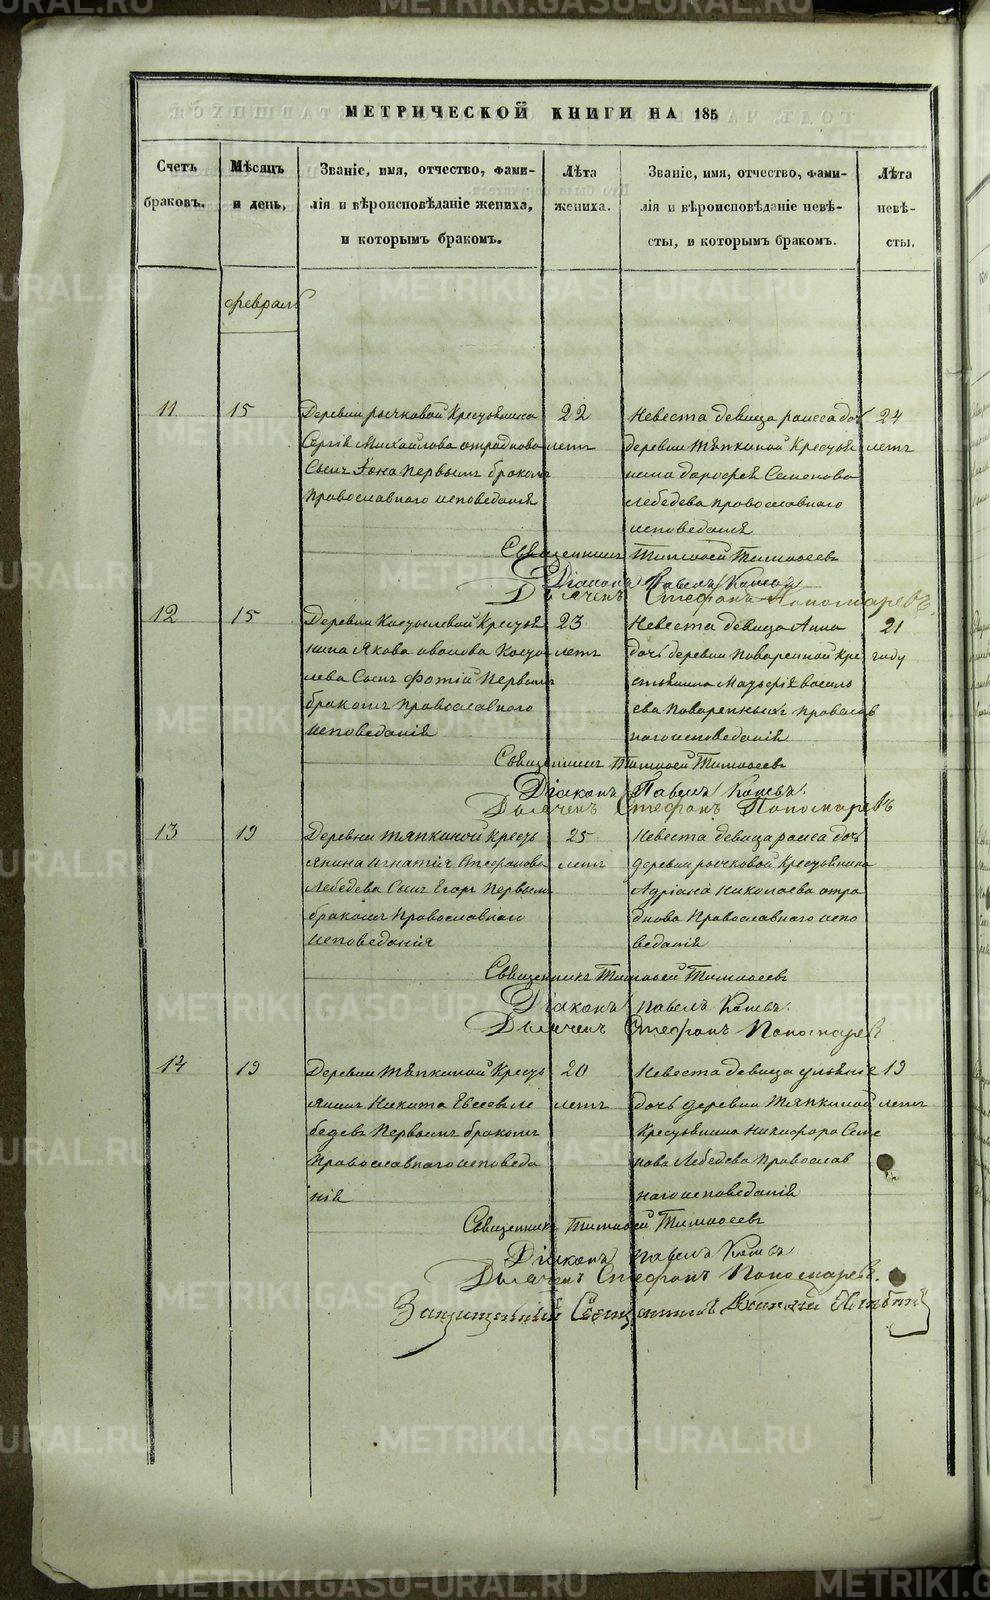 МЕТРИЧЕСКОЙ КНИГИ НА 185
Счетъ браковъ.
Мѣсяцъ и день.
Званіе, имя, отчество, фами-
лія и вѣроисповѣданіе жениха,
и которымъ бракомъ.
Лѣта
жениха.
Званіе, имя, отчество, фами-
лія и вѣроисповѣданіе невѣ-
сты, и которымъ бракомъ.
Лѣта
невѣ-
сты.
февраль
11
15
Деревни рычковой Крестьянина
Сергія Михайлова отраднова
Сынъ Іона Первымъ бракомъ
Православнаго исповеданія
22
летъ
Невеста девица раиса дочь
деревни тяпкиной Крестья
нина дарофея Семенова
лебедева православнаго
исповеданія
24
летъ
Священникъ Тимофей Тимофеевъ
Діаконъ Павелъ
Дьячекъ Стефанъ Пономаревъ
12
15
Деревни Костылевой Крестья
нина Якова Косты
лева Сынъ Фотій Первымъ
бракомъ православнаго
исповеданія
23
летъ
Невеста девица Анна
дочь деревни Поваренной Кре
стьянина василь
ева Поваренныхъ православ
наго исповеданія
21
году
Священникъ Тимофей Тимофеевъ
Діаконъ Павелъ
Дьячекъ Стефанъ Пономаревъ
13
19
Деревни тяпкиной Кресть
янина игнатія Стефанова
Лебедева Сынъ Егоръ Первымъ
бракомъ Православнаго
исповеданія
25
летъ
Невеста девица раиса дочь
деревни рычковой Крестьянина
Адріана Николаева отра
днова Православнаго испо
веданія
Священникъ Тимофей Тимофеевъ
Діаконъ Павелъ
Дьячекъ Стефанъ Пономаревъ
14
19
Деревни тяпкиной Кресть
янинъ Никита Евсевъ ле
бедевъ Первымъ бракомъ
Православнаго исповеда
нія
20
летъ
Невеста девица ульяніе
дочь деревни Тяпкиной
Крестьянина Никифора Семе
нова Лебедева Православ
наго исповеданія
19
летъ
Священникъ Тимофей Тимофеевъ
Діаконъ Павелъ
Дьячекъ Стефанъ Пономаревъ.
METRIKI.GASO-URAL.RU